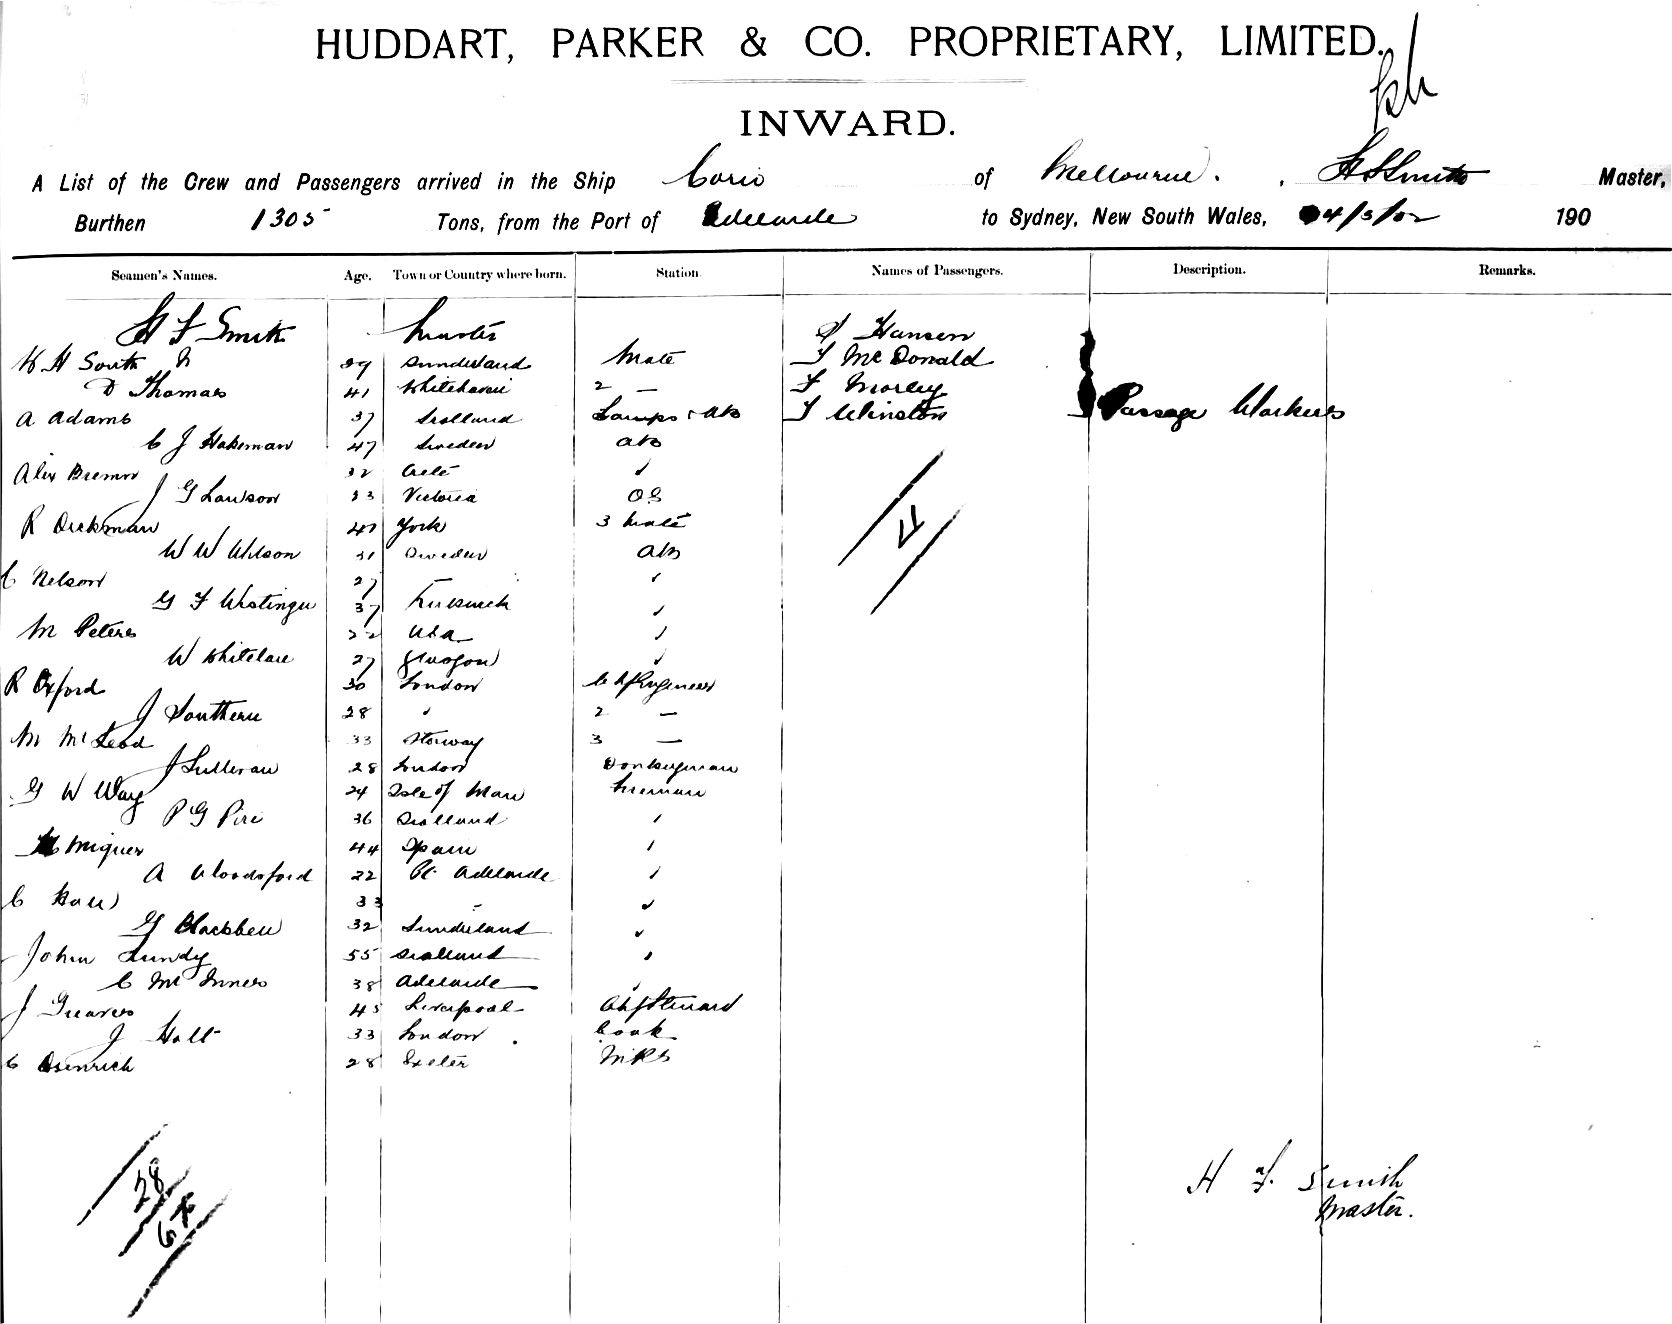 HUDDART, PARKER & CO. PROPRIETARY, LIMITED.
INWARD.
A List of the Crew and Passengers arrived in the Ship Corio of Melbourne. H F Smith Master,
Burthen 1305 Tons, from the Port of Adelaide to Sydney, New South Wales, 4/3/02 190
Seamen's Names. Age. Town or Country where born. Station. Names of Passengers. Description. Remarks.
H F Smith Master Hansen
H South 39 Sunderland Mate T McDonald
D Thomas 41 Whitehaven 2 — F Morley
A Adams 37 Scotland Lamps & AB T Winston Passage Workers
C J Hakeman 47 Sweden AB
Alex Bremner 32
J G Lawson 23 Victoria OS
R Dickman 40 York 3 Mate
W W Wilson 31 Sweden AB 4
C Nelson 27 —
G F Westinger 37
M Peters 22 USA
W Whitelaw 27 Glasgow
R Oxford 30 London Ch Engineer
J Southern 28 2 —
M McLeod 33 3 —
J Sullivan 28 London Donkeyman
G W Way 24 Isle of Man Fireman
P G Piri 36 Scotland
Miguez 44 Spain
A Woodsford 22 Pt Adelaide
C 33
G Blackbell 32 Sunderland
John Lundy 55 Scotland
C McInnes 38 Adelaide
J Greaves 45 Liverpool Ch Steward
J Holt 33 London Cook
C Heinrich 28 Exeter
28
H F. Smith
Master.